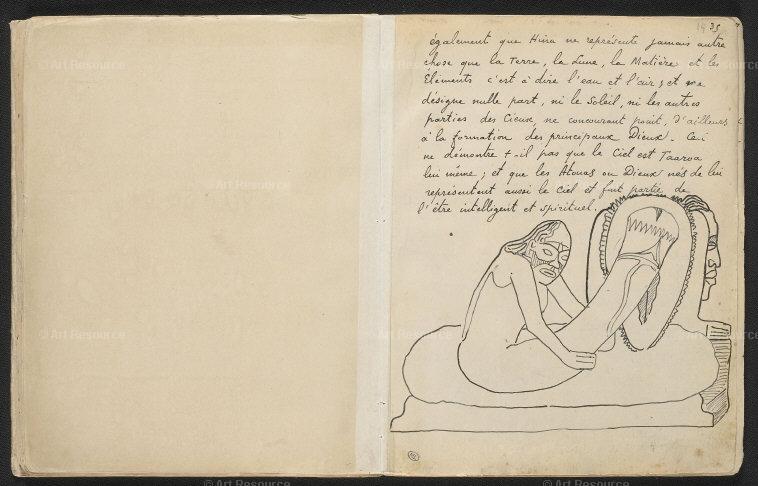 35
également que Hina ne représente jamais autre
chose que la Terre, la Lune, la Matière et les
Eléments c'est à dire l'eau et l'air; et ne
désigne nulle part, ni le Soleil, ni les autres
parties des Cieux ne concourant point, d'ailleurs
à la formation des principaux Dieux. Ceci
ne démontre t-il pas que le Ciel est Taaroa
lui même; et que les Atouas ou Dieux nés de lui
représentent aussi le Ciel et font partie de
l'être intelligent et spirituel.
© Art Resource
© Art Resource
© Art Resource
© Art Resource
© Art Resource